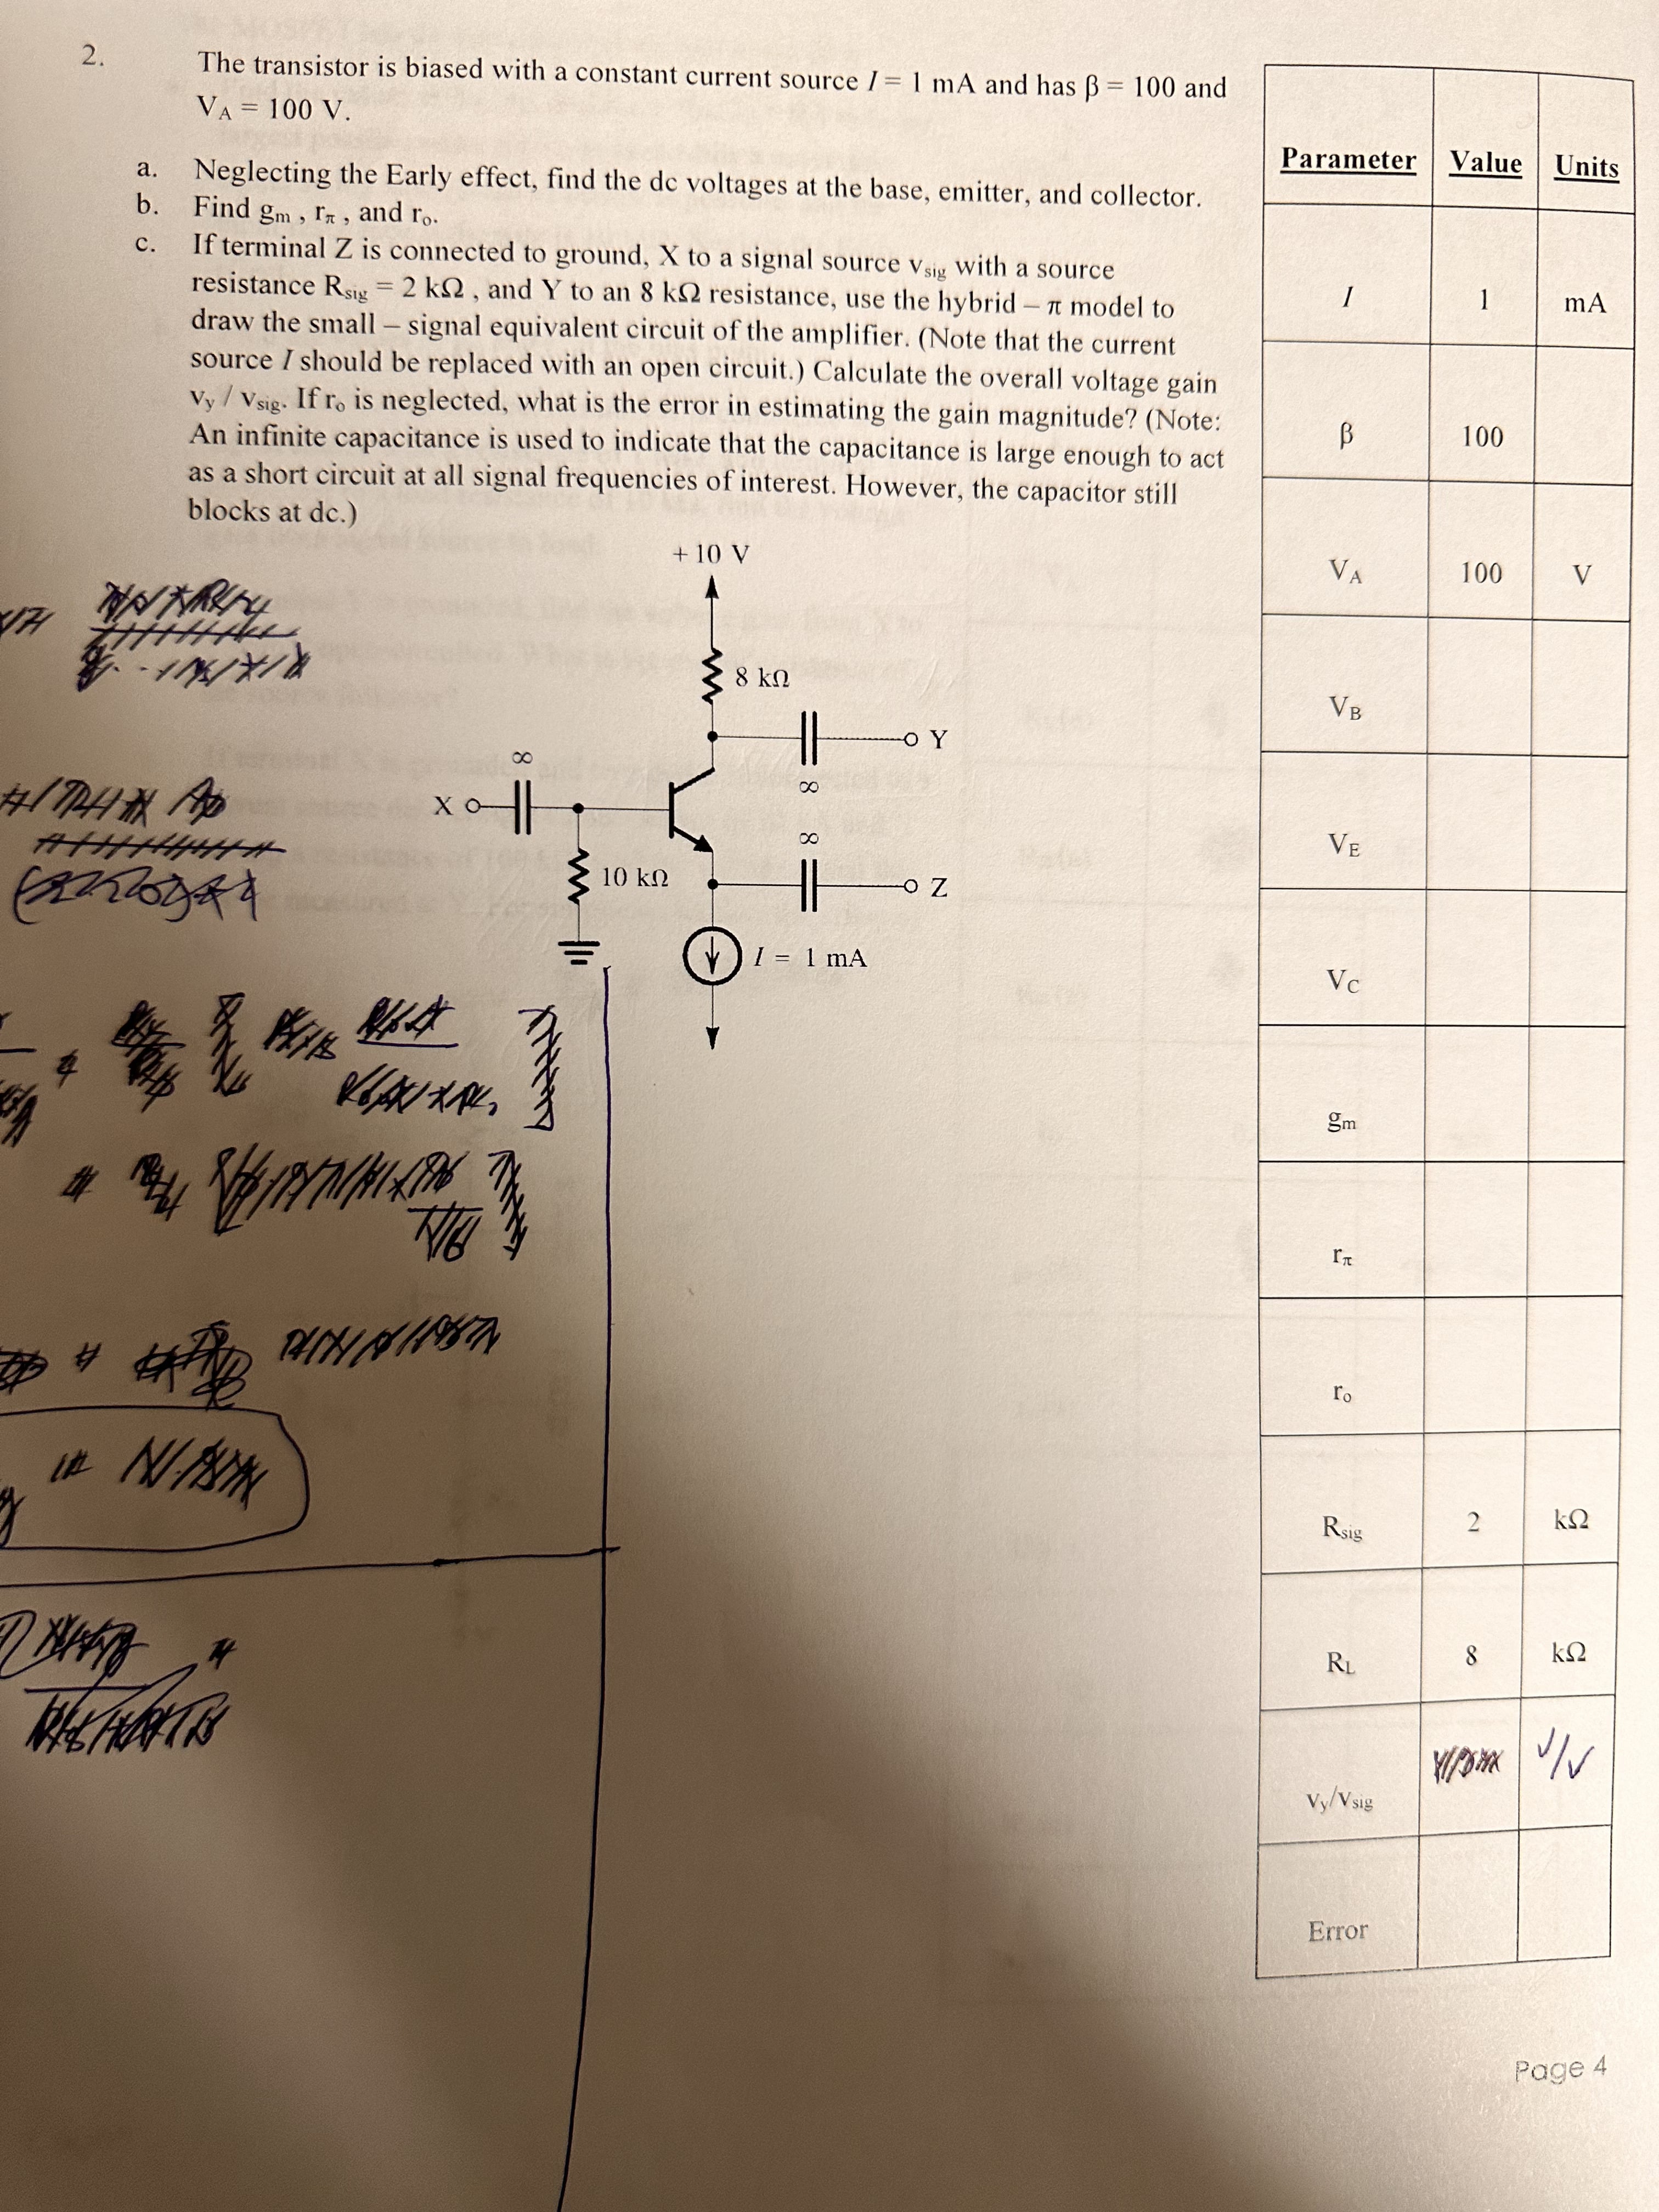 2.
The transistor is biased with a constant current source I = 1 mA and has β = 100 and
V_A = 100 V.
a. Neglecting the Early effect, find the dc voltages at the base, emitter, and collector.
b. Find g_m , r_π , and r_o.
c. If terminal Z is connected to ground, X to a signal source v_sig with a source
resistance R_sig = 2 kΩ , and Y to an 8 kΩ resistance, use the hybrid – π model to
draw the small – signal equivalent circuit of the amplifier. (Note that the current
source I should be replaced with an open circuit.) Calculate the overall voltage gain
v_y / v_sig. If r_o is neglected, what is the error in estimating the gain magnitude? (Note:
An infinite capacitance is used to indicate that the capacitance is large enough to act
as a short circuit at all signal frequencies of interest. However, the capacitor still
blocks at dc.)
+ 10 V
8 kΩ
Y
∞
∞
X
∞
10 kΩ
Z
I = 1 mA
Parameter Value Units
I 1 mA
β 100
V_A 100 V
V_B
V_E
V_C
g_m
r_π
r_o
R_sig 2 kΩ
R_L 8 kΩ
v_y/v_sig V/V
Error
Page 4